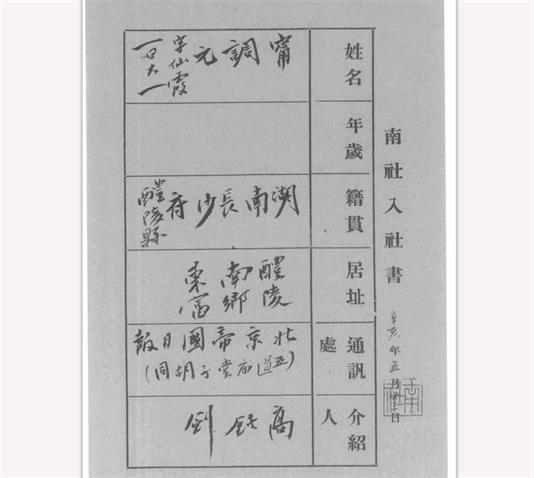 南社入社書
辛亥年五月日
姓名
甯調元
字仙霞
一曰太一
年歲
籍貫
湖南長沙府
醴陵縣
居址
醴陵
南鄉
東富
通訊處
北京帝國日報
(五道廟堂子胡同)
介紹人
高鈍劍